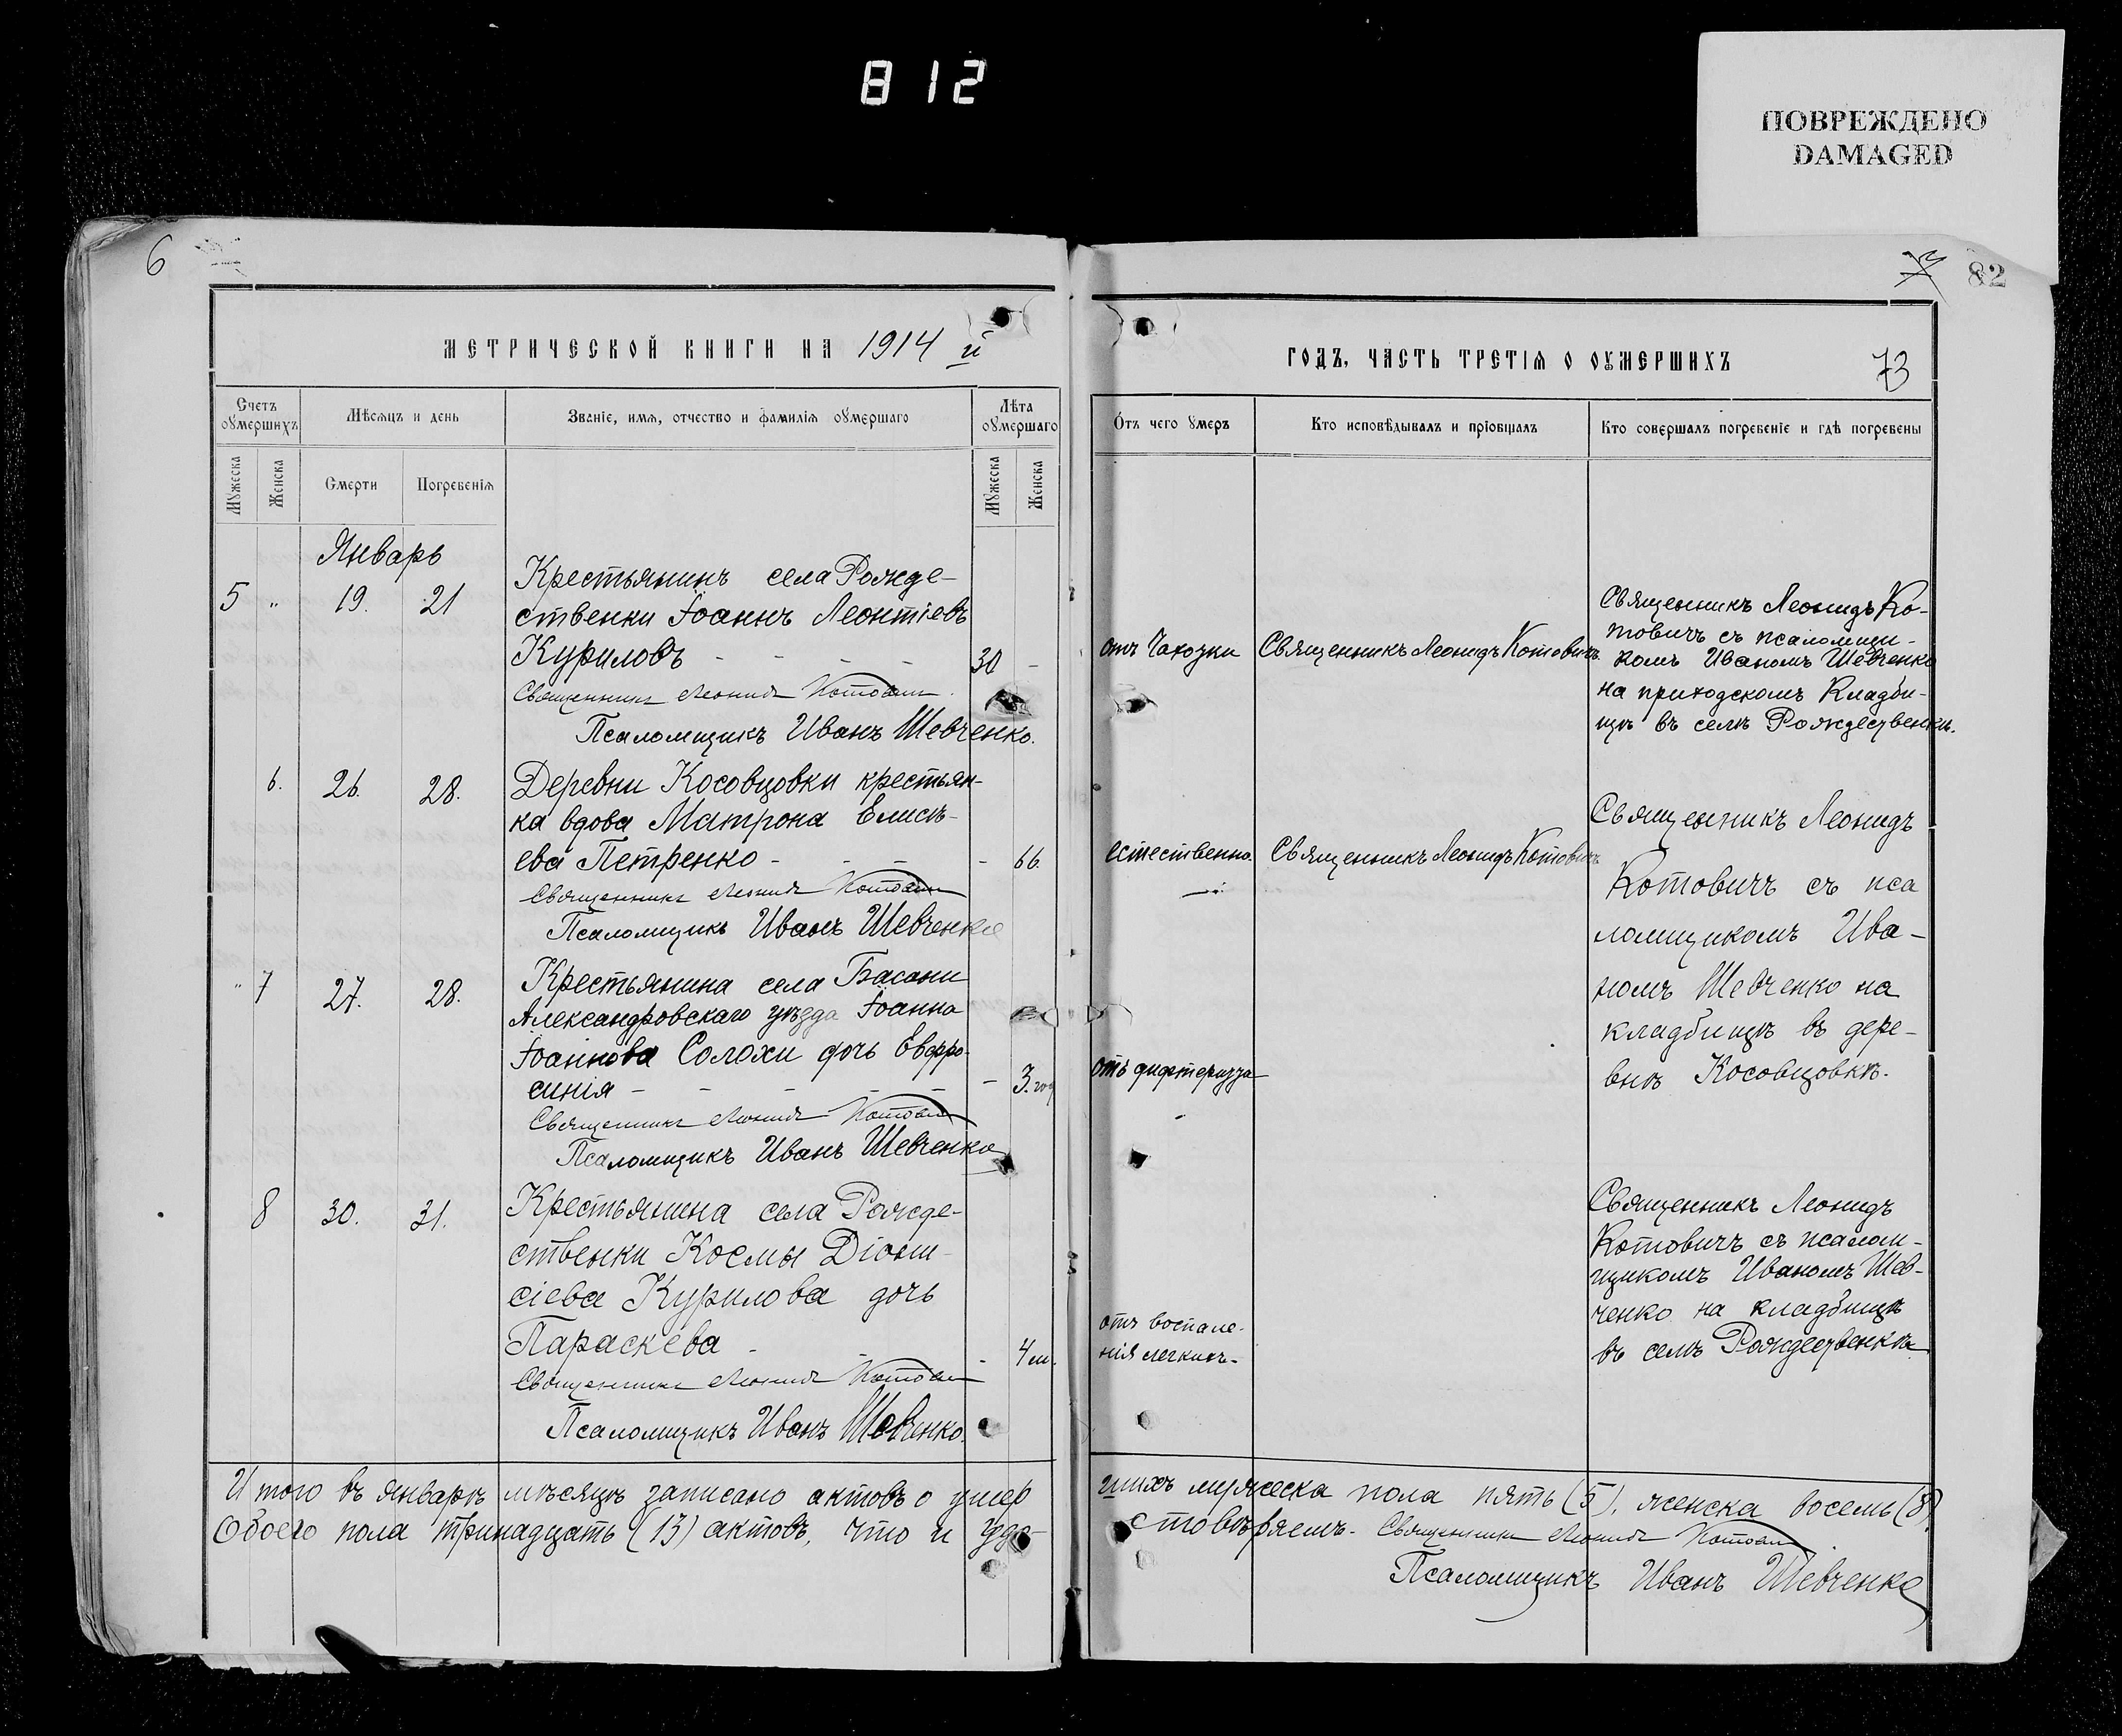 812
ПОВРЕЖДЕНО
DAMAGED
6
82
МЕТРИЧЕСКОЙ КНИГИ НА 1914 й
ГОДЪ, ЧАСТЬ ТРЕТІЯ О ОУМЕРШИХЪ
73
Счетъ оумершихъ
Мѣсяцъ и день
Званіе, имя, отчество и фамилія оумершаго
Лѣта оумершаго
Отъ чего умеръ
Кто исповѣдывалъ и пріобщалъ
Кто совершалъ погребеніе и гдѣ погребены
Мужеска
Женска
Смерти
Погребенія
Мужеска
Женска
Январь
5 " 19. 21
Крестьянинъ села Рожде-
ственки Іоаннъ Леонтіевъ
Куриловъ - - - - 30 -
Священникъ Леонидъ Котович
Псаломщикъ Иванъ Шевченко.
отъ Чахотки
Священникъ Леонидъ Котовичъ.
Священникъ Леонидъ Ко-
товичъ съ псаломщи-
комъ Иваномъ Шевченко
на приходскомъ Кладби-
щѣ въ селѣ Рождественкѣ.
6. 26. 28.
Деревни Косовцовки крестьян-
ка вдова Матрона Елисѣ-
ева Петренко - - - - 66.
Священникъ Леонидъ Котович
Псаломщикъ Иванъ Шевченко
естественно.
Священникъ Леонидъ Котовичъ
Священникъ Леонидъ
Котовичъ съ пса
ломщикомъ Ива-
номъ Шевченко на
кладбищѣ въ дере-
внѣ Косовцовкѣ.
" 7 27. 28.
Крестьянина села Басани
Александровскаго уѣзда Іоанна
Іоаннова Солохи дочь Евфро-
синія - - - - - 3. год
Священникъ Леонидъ Котович
Псаломщикъ Иванъ Шевченко
отъ дифтерита
8 30. 31.
Крестьянина села Рожде-
ственки Космы Діони-
сіева Курилова дочь
Параскева - - - 4 м.
Священникъ Леонидъ Котович
Псаломщикъ Иванъ Шевченко.
отъ воспале-
нія легкихъ-
Священникъ Леонидъ
Котовичъ съ псалом-
щикомъ Иваномъ Шев-
ченко на кладбищѣ
въ селѣ Рождественкѣ
Итого въ январѣ мѣсяцѣ записано актовъ о умер
шихъ мужеска пола пять (5), женска восемь (8).
Обоего пола тринадцать (13) актовъ, что и удо-
стовѣряемъ. Священникъ Леонидъ Котович
Псаломщикъ Иванъ Шевченко